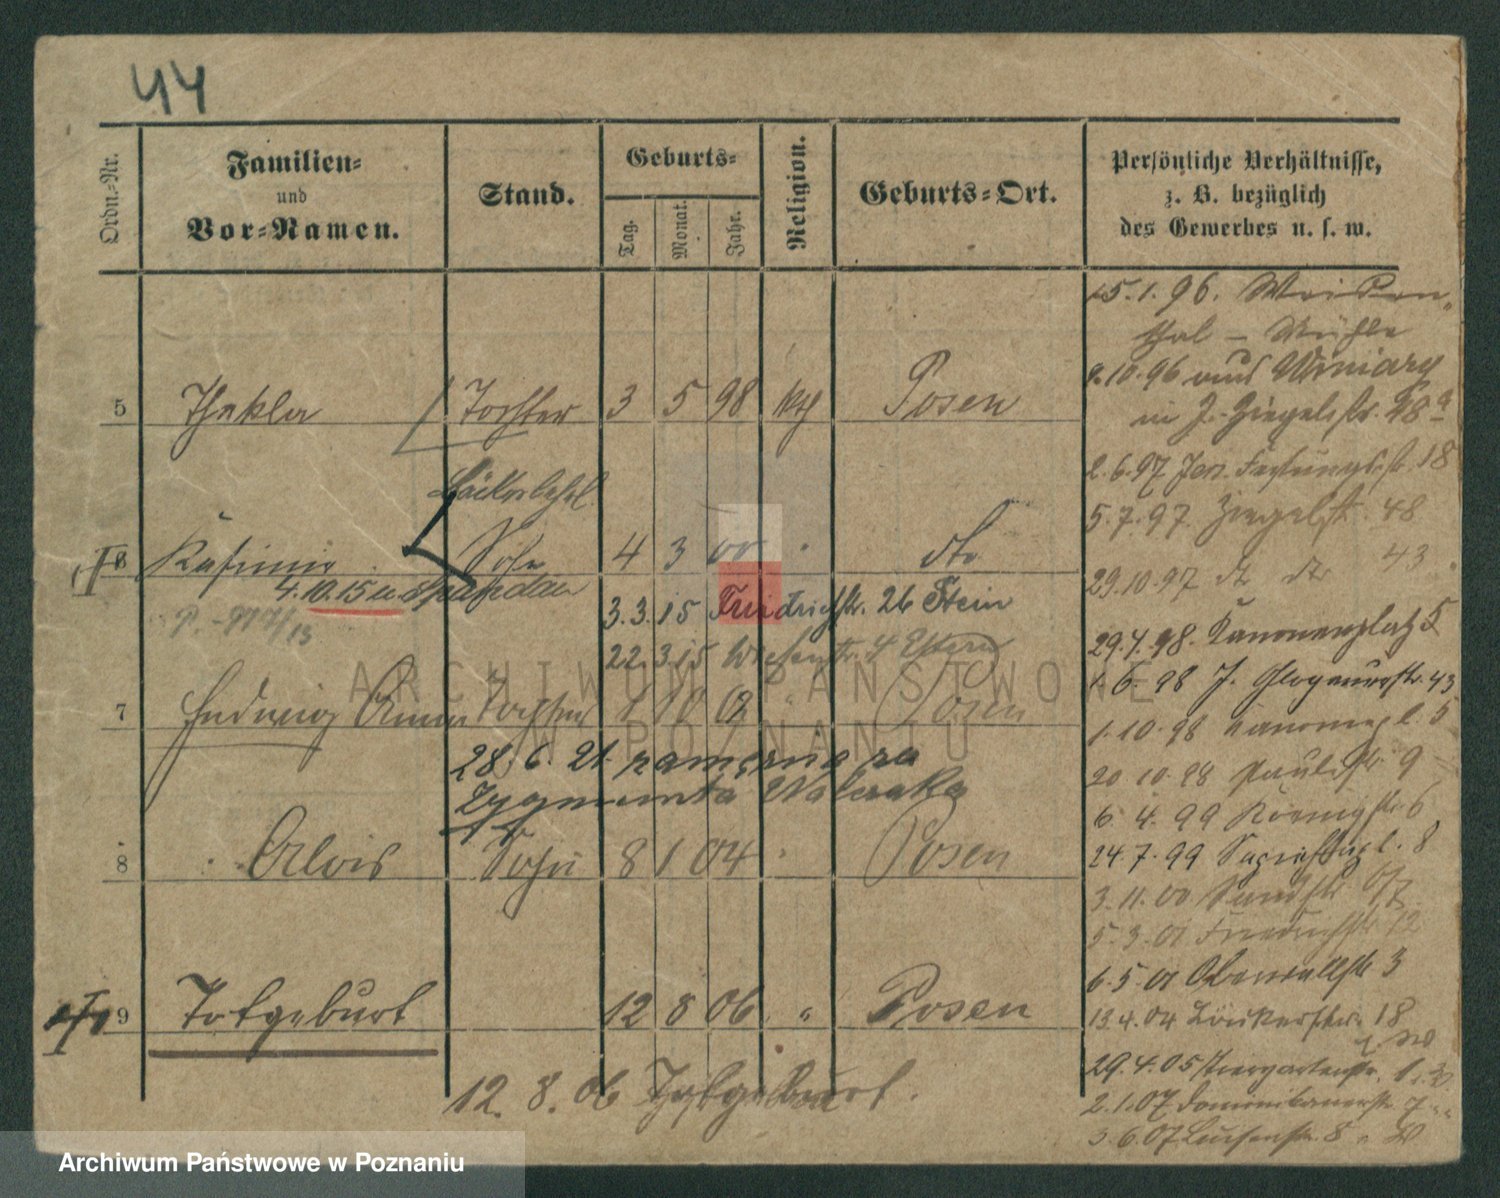 44
Ordn.-Nr.
Familien-
und
Vor-Namen.
Stand.
Geburts-
Tag.
Monat.
Jahr.
Religion.
Geburts-Ort.
Persönliche Verhältnisse,
z. B. bezüglich
des Gewerbes u. s. w.
15.1.96. Weiden-
thal – Mühle
2.10.96 und Winiary
in J. Ziegelstr. 48
5 Thekla Tochter 3 5 98 kth Posen
2.6.97 Jers. Festungsstr. 18
5.7.97. Ziegelstr. 48
Bäckerlehrl.
6 Kasimir Sohn 4 3 00 " dto
29.10.97 dto dto 43
4.10.15 n. Spandau
3.3.15 Friedrichstr. 26 Stein
29.4.98. Kanonenplatz 5
22.3.15 Wiesenstr. 4 Eltern
1.6.98 J. Glogauerstr. 43
7 Hedwig Anna Tochter 1 10 02 " Posen
1.10.98 Kanonenpl. 5
28.6.21. zamężna za
20.10.98 Paulistr. 9
Zygmunta Walczaka
6.4.99 Königstr. 6
8 Alois Sohn 8 1 04 " Posen
24.7.99 Sapiehapl. 8
3.11.00 Sandstr.
5.3.01 Friedrichstr. 12
6.5.01 Oberwallstr. 3
9 Totgeburt 12 8 06 " Posen
13.4.04 Bäckerstr. 18
29.4.05 Tiergartenstr. 1
12.8.06 Totgeburt.
2.1.07 Dominikanerstr. 7
3.6.07 Luisenstr. 8
ARCHIWUM PAŃSTWOWE
W POZNANIU
Archiwum Państwowe w Poznaniu